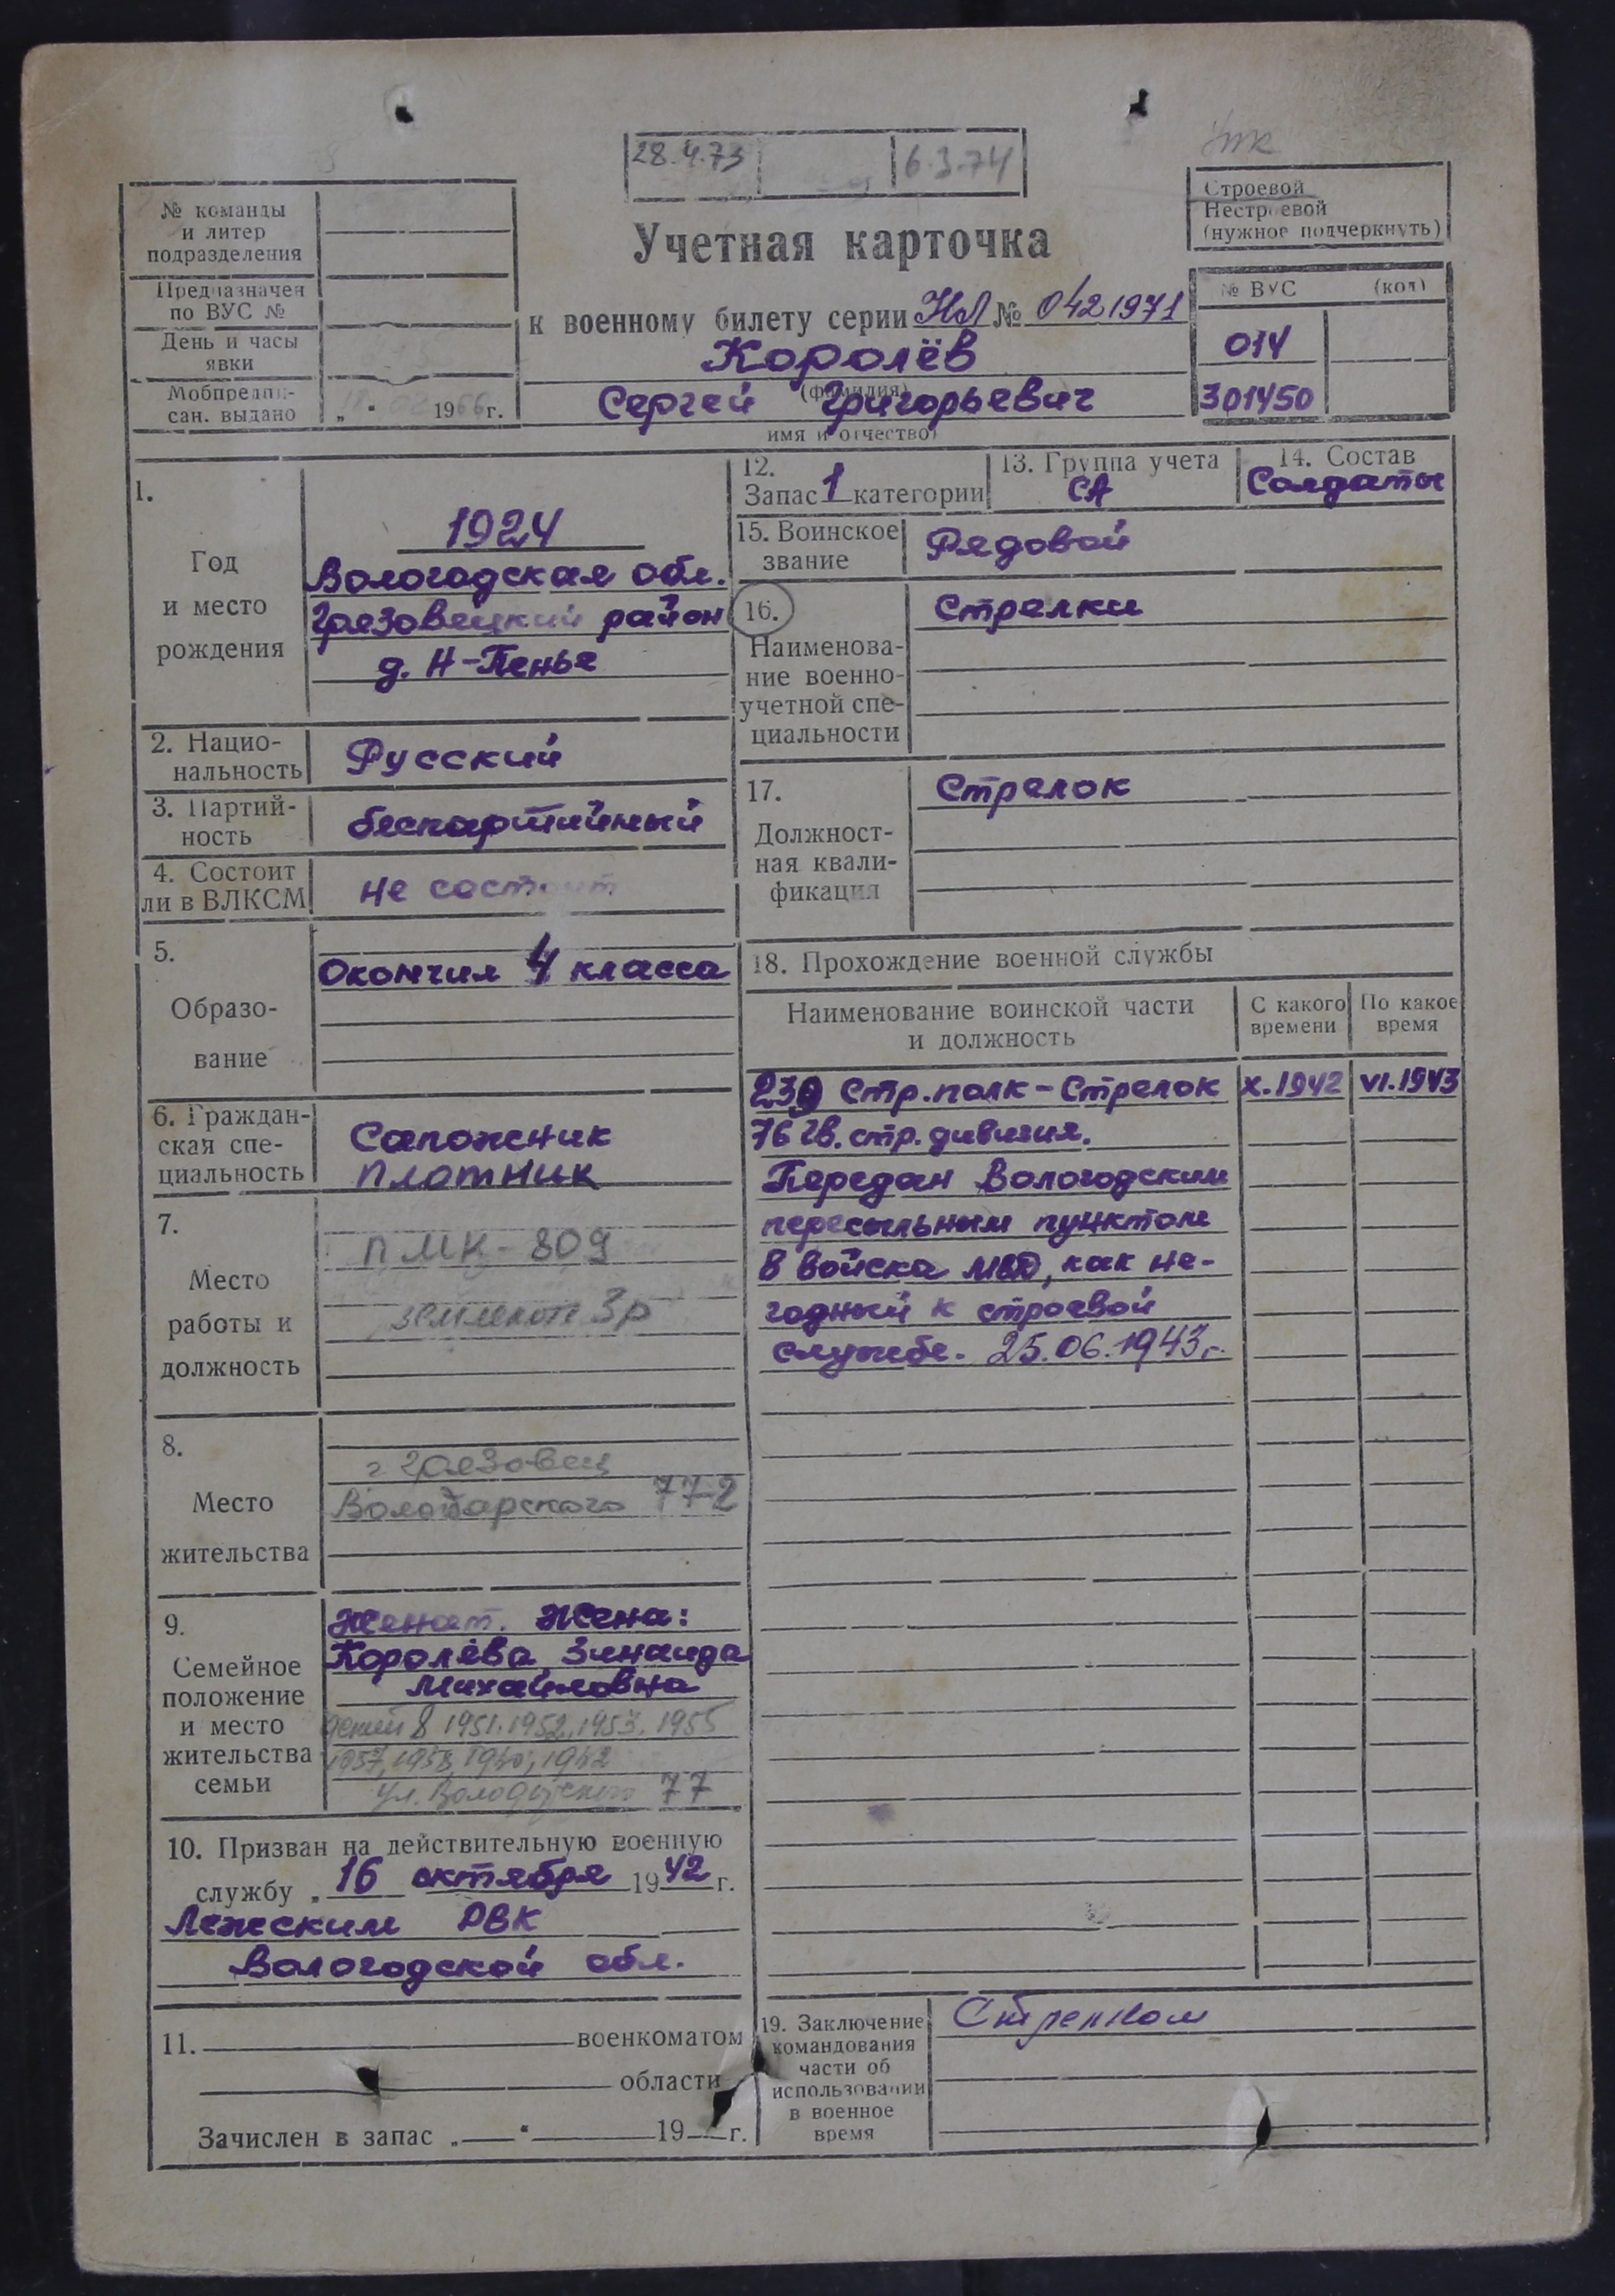 УПК
28.4.73 6.3.74
Строевой
Нестроевой
(нужное подчеркнуть)
№ команды
и литер
подразделения
Предназначен
по ВУС №
День и часы
явки
Мобпредпи-
сан. выдано „ “ 1966 г.
Учетная карточка
к военному билету серии НЛ № 0421971
Королёв
(фамилия)
Сергей Григорьевич
имя и отчество)
№ ВУС (код)
014
301450
1.
Год
и место
рождения
1924
Вологодская обл.
Грязовецкий район
д. Н-Пенье
2. Нацио-
нальность
Русский
3. Партий-
ность
беспартийный
4. Состоит
ли в ВЛКСМ
не состоит
5.
Образо-
вание
Окончил 4 класса
6. Граждан-
ская спе-
циальность
Сапожник
плотник
7.
Место
работы и
должность
ПМК-809
землекоп 3р
8.
Место
жительства
г Грязовец
Володарского 77-2
9.
Семейное
положение
и место
жительства
семьи
Женат. Жена:
Королёва Зинаида
Михайловна
детей 8 1951, 1952, 1953, 1955
1957, 1958, 1960, 1962
ул. Володарского 77
10. Призван на действительную военную
службу „ 16 октября 1942 г.
Лежским РВК
Вологодской обл.
11. военкоматом
области
Зачислен в запас „ “ 19 г.
12.
Запас 1 категории
13. Группа учета
СА
14. Состав
Солдаты
15. Воинское
звание
Рядовой
16.
Наименова-
ние военно-
учетной спе-
циальности
Стрелки
17.
Должност-
ная квали-
фикация
Стрелок
18. Прохождение военной службы
Наименование воинской части
и должность
С какого
времени
По какое
время
239 Стр. полк - Стрелок X.1942 VI.1943
76 гв. стр. дивизия.
Передан Вологодским
пересыльным пунктом
в войска МВД, как не-
годный к строевой
службе. 25.06.1943 г.
19. Заключение
командования
части об
использовании
в военное
время
Стрелком